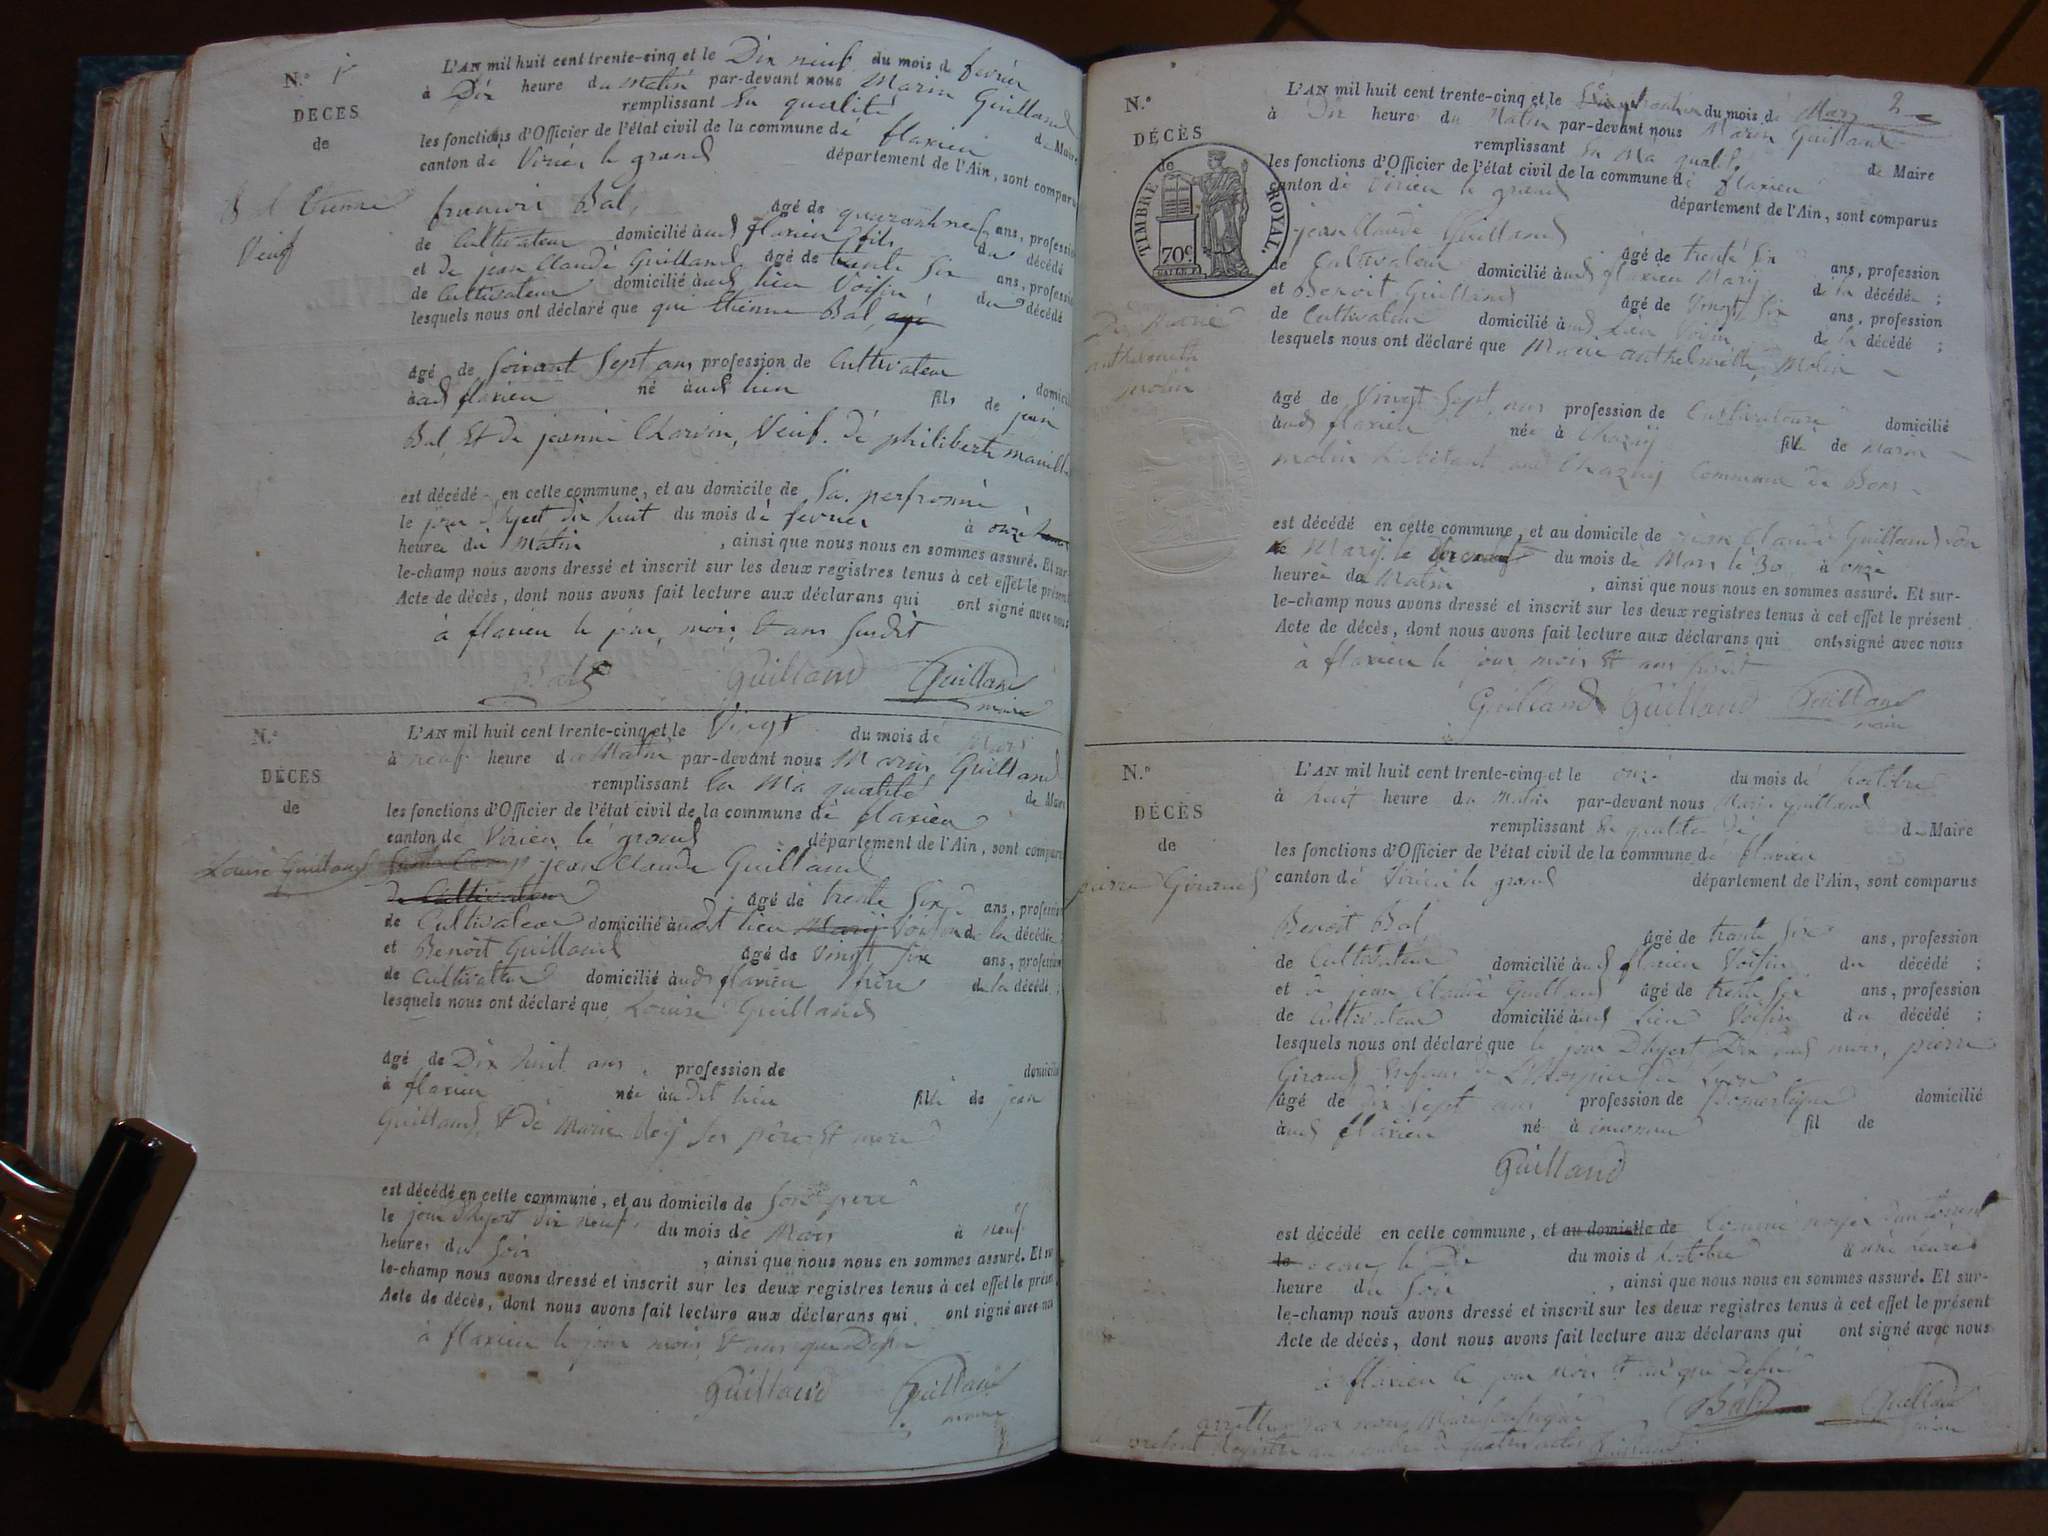 N.° 1er
DÉCÈS
de
Etienne
Veuf
L'AN mil huit cent trente-cinq et le Dix neuf du mois de fevrier
à Dix heure du Matin par-devant nous Marin Guilland
remplissant En qualité de Maire
les fonctions d'Officier de l'état civil de la commune de flaxieu
canton de Virieu le grand département de l'Ain, sont comparus
francois Bal, âgé de quarante neuf ans, profession
de Cultivateur domicilié aud flaxieu fils du décédé
et de jean Claude Guilland âgé de trente Six ans, profession
de Cultivateur domicilié aud lieu Voisin du décédé
lesquels nous ont déclaré que Etienne Bal,
âgé de Soixant Sept ans profession de Cultivateur domicilié
aud flaxieu né aud lieu fils de jean
Bal, Et de jeanne Charvin, Veuf de philiberte
est décédé en cette commune, et au domicile de Sa personne
le jour d'hyert dix huit du mois de fevrier à onze
heure du Matin, ainsi que nous nous en sommes assuré. Et sur-
le-champ nous avons dressé et inscrit sur les deux registres tenus à cet effet le présent
Acte de décès, dont nous avons fait lecture aux déclarans qui ont signé avec nous
à flaxieu le jour, mois, Et ans Susdit
Bal Guilland Guilland
maire
N.°
DÉCÈS
de
Louise Guilland
L'AN mil huit cent trente-cinq et le Vingt du mois de Mars
à neuf heure du Matin par-devant nous Marin Guilland
remplissant En Ma qualité de Maire
les fonctions d'Officier de l'état civil de la commune de flaxieu
canton de Virieu le grand département de l'Ain, sont comparus
jean Claude Guilland
de Cultivateur âgé de trente Six ans, profession
de Cultivateur domicilié audit lieu Mary Voisin de la décédée
et Benoit Guilland âgé de Vingt Six ans, profession
de Cultivateur domicilié aud flaxieu frère de la décédé;
lesquels nous ont déclaré que Louise Guilland
âgé de Dix huit ans, profession de domicilié
à flaxieu née audit lieu fille de jean
Guilland, Et de Marie Ses père Et mere
est décédé en cette commune, et au domicile de Son pere
le jour d'hyert dix neuf du mois de Mars à neuf
heures du Soir, ainsi que nous nous en sommes assuré. Et sur-
le-champ nous avons dressé et inscrit sur les deux registres tenus à cet effet le présent
Acte de décès, dont nous avons fait lecture aux déclarans qui ont signé avec nous
à flaxieu le jour mois Et ans que Desus
Guilland Guilland
maire
2
N.°
DÉCÈS
de
TIMBRE ROYAL.
70c.
De Marie
anthelmette
Molin
L'AN mil huit cent trente-cinq et le du mois de Mars
à Dix heure du Matin par-devant nous Marin Guilland
remplissant En Ma qualité de Maire
les fonctions d'Officier de l'état civil de la commune de flaxieu
canton de Virieu le grand département de l'Ain, sont comparus
jean Claude Guilland âgé de trente Six ans, profession
de Cultivateur domicilié aud flaxieu Mary de la décédée;
et Benoit Guilland âgé de Vingt Six ans, profession
de Cultivateur domicilié aud Lieu Voisin de la décédé;
lesquels nous ont déclaré que Marie anthelmette Molin
âgé de Vingt Sept ans profession de Cultivateure domicilié
aud flaxieu née à Chazey fille de Marin
molin habitant aud Chazey Commune de Bons
est décédé en cette commune, et au domicile de jean Claude Guilland Son
Mary. le du mois de Mars le 30 à onze
heure du Matin, ainsi que nous nous en sommes assuré. Et sur-
le-champ nous avons dressé et inscrit sur les deux registres tenus à cet effet le présent
Acte de décès, dont nous avons fait lecture aux déclarans qui ont signé avec nous
à flaxieu le jour mois Et ans Susdit
Guilland Guilland Guilland
maire
N.°
DÉCÈS
de
pierre Giraud
L'AN mil huit cent trente-cinq et le onze du mois de hoctobre
à huit heure du Matin par-devant nous Marin Guilland
remplissant En qualité de de Maire
les fonctions d'Officier de l'état civil de la commune de flaxieu
canton de Virieu le grand département de l'Ain, sont comparus
Benoit Bal âgé de trante Six ans, profession
de Cultivateur domicilié aud flaxieu Voisin du décédé;
et a jean Claude Guilland âgé de trente Six ans, profession
de Cultivateur domicilié aud Lieu Voisin du décédé;
lesquels nous ont déclaré que le jour D'hyert Dix aud mois, pierre
Giraud Enfant de L'Hospice de Lyon
âgé de dix Sept ans profession de Domestique domicilié
aud flaxieu né à inconnu fil de
Guilland
est décédé en cette commune, et au domicile de
le du mois d'hoctobre à une heure
heure du Soir, ainsi que nous nous en sommes assuré. Et sur-
le-champ nous avons dressé et inscrit sur les deux registres tenus à cet effet le présent
Acte de décès, dont nous avons fait lecture aux déclarans qui ont signé avec nous
à flaxieu le jour mois Et an que Desus
Bal Guilland
maire
nous Maire Soussigné
présent Registre au nombre de quatre actes Guilland